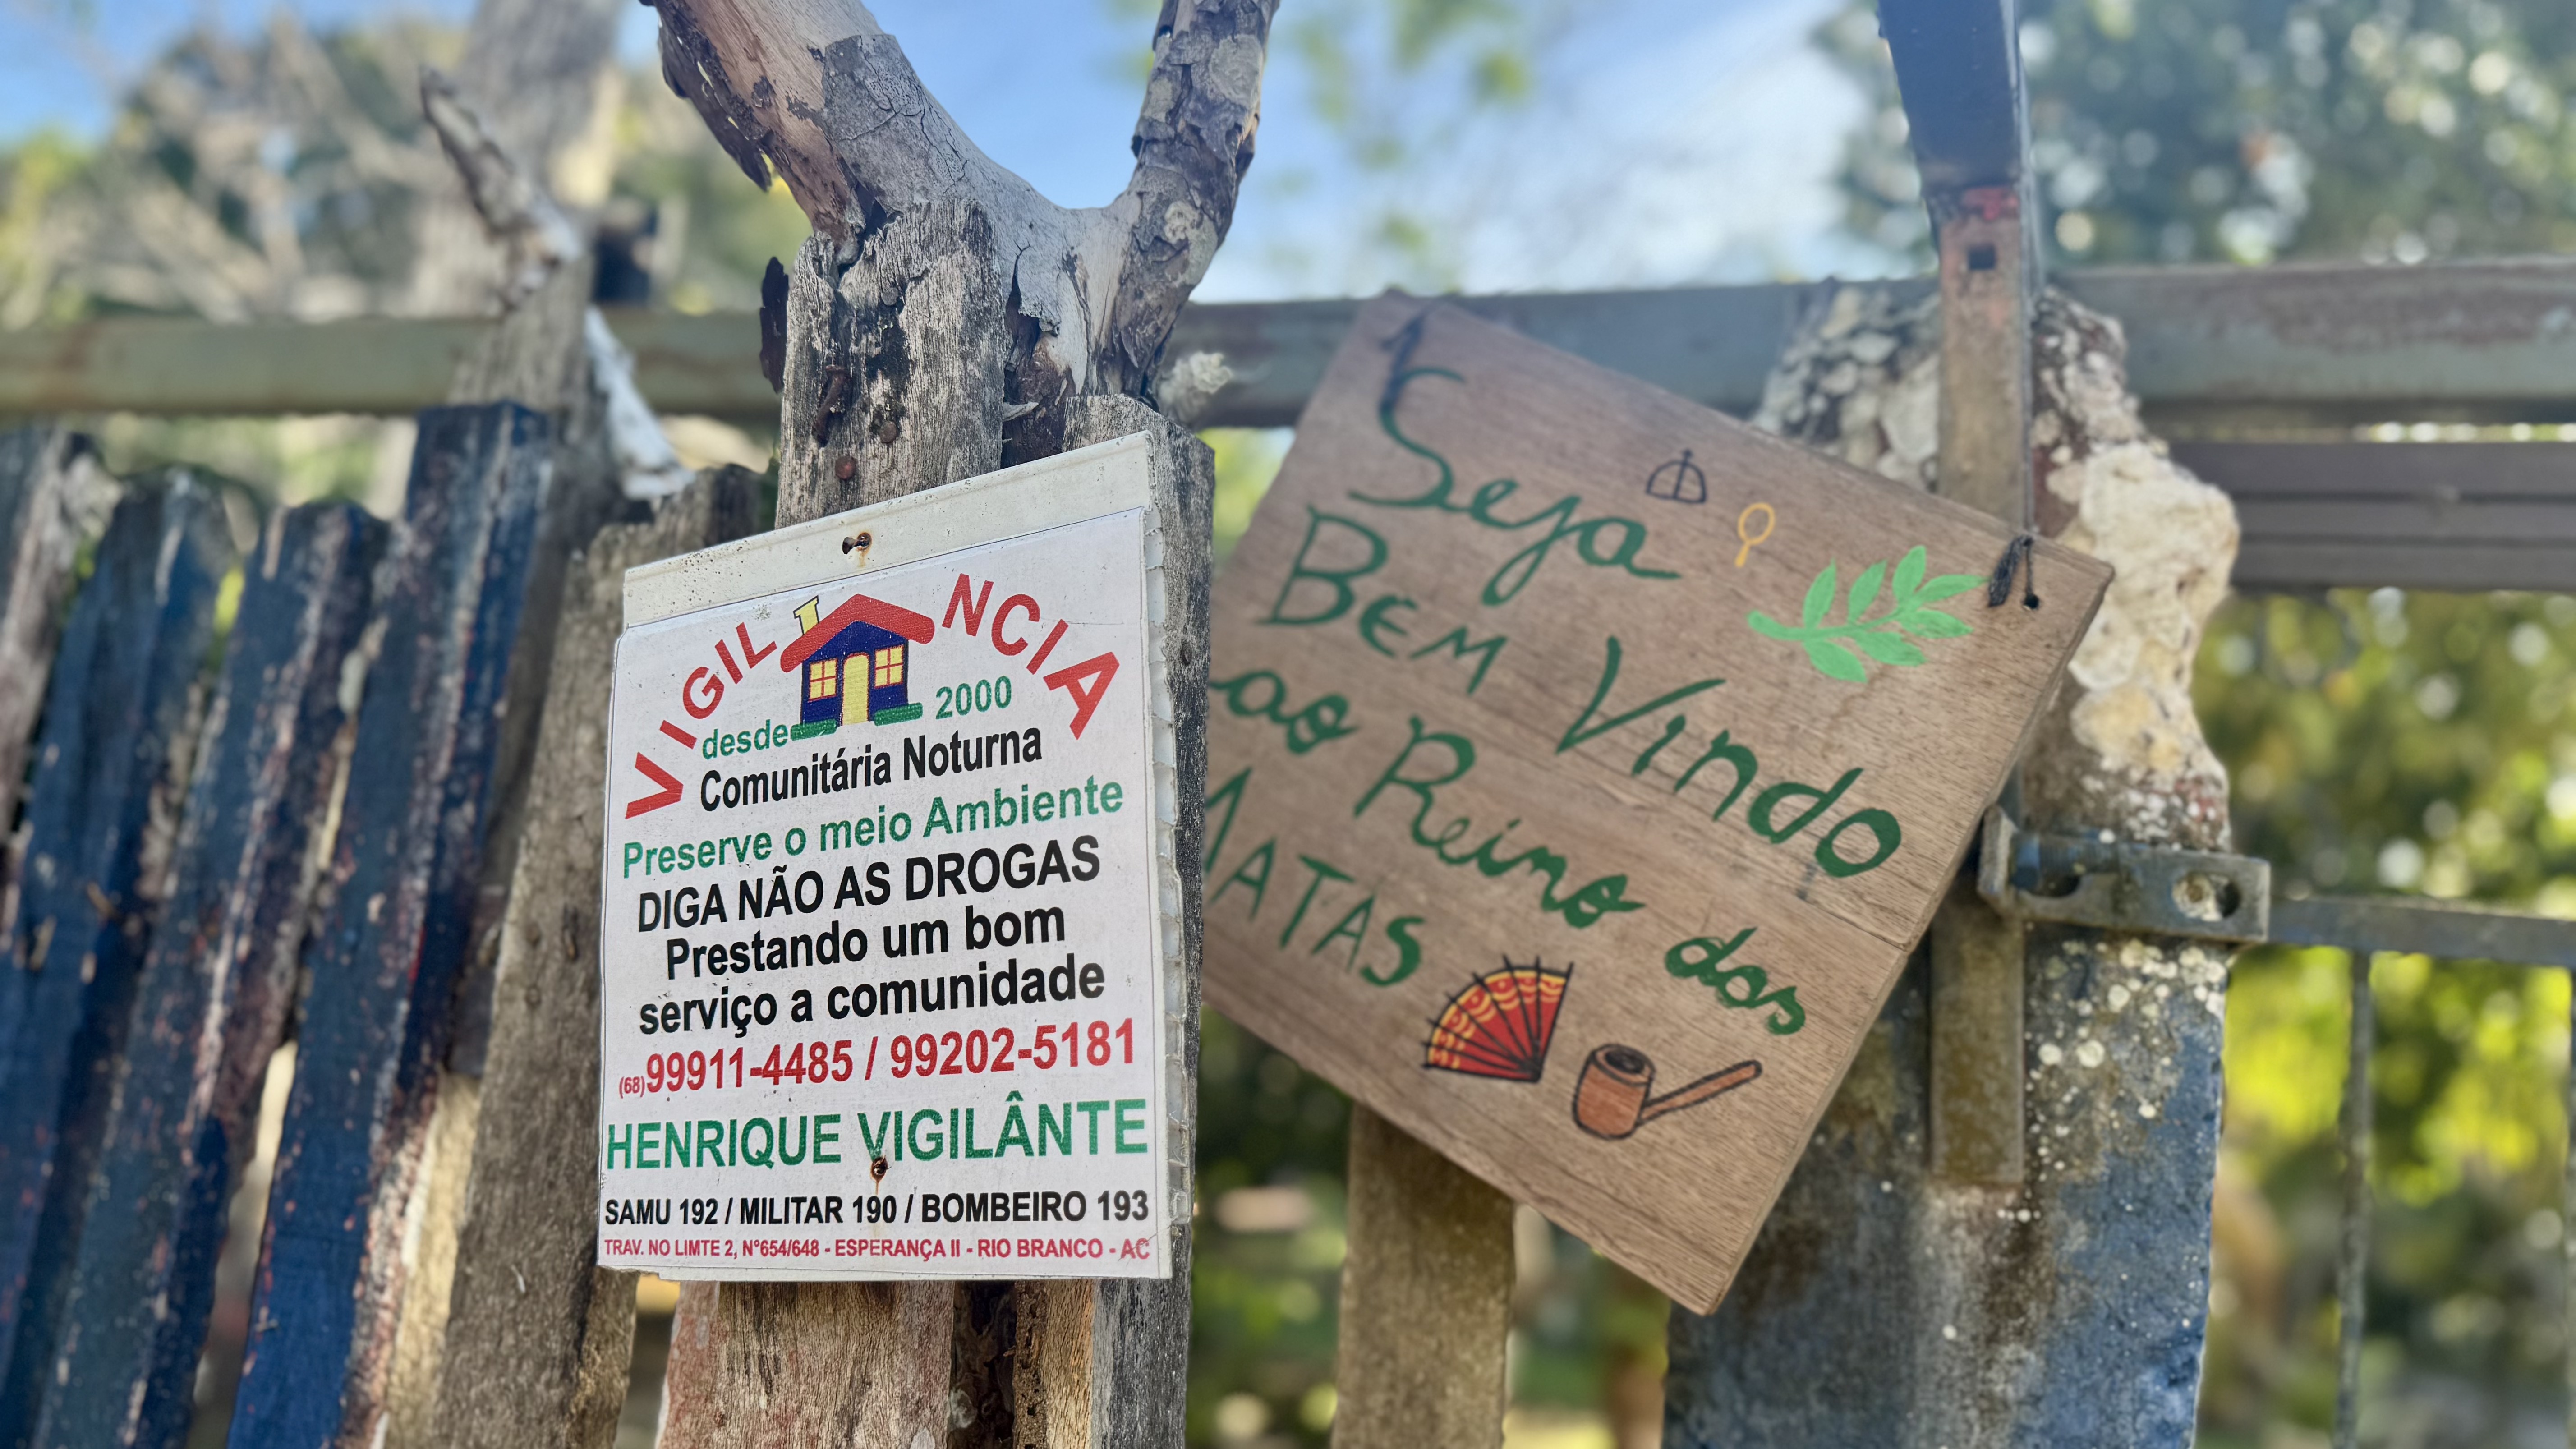 VIGILÂNCIA
desde 2000
Comunitária Noturna
Preserve o meio Ambiente
DIGA NÃO AS DROGAS
Prestando um bom
serviço a comunidade
(68)99911-4485 / 99202-5181
HENRIQUE VIGILÂNTE
SAMU 192 / MILITAR 190 / BOMBEIRO 193
TRAV. NO LIMTE 2, N°654/648 - ESPERANÇA II - RIO BRANCO - AC
Seja
BEM Vindo
ao Reino dos
MATAS